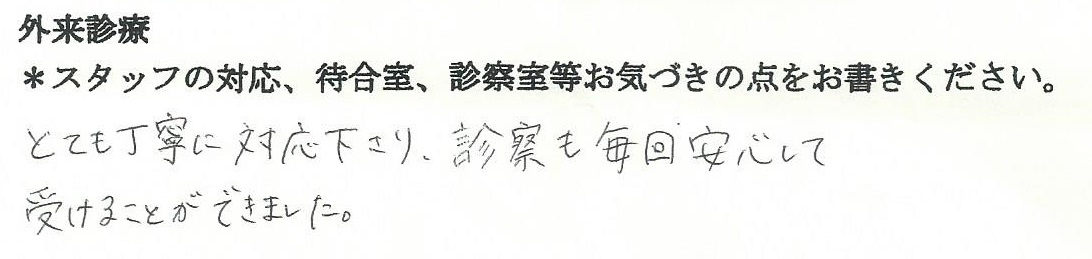 外来診療
＊スタッフの対応、待合室、診察室等お気づきの点をお書きください。
とても丁寧に対応下さり、診察も毎回安心して
受けることができました。